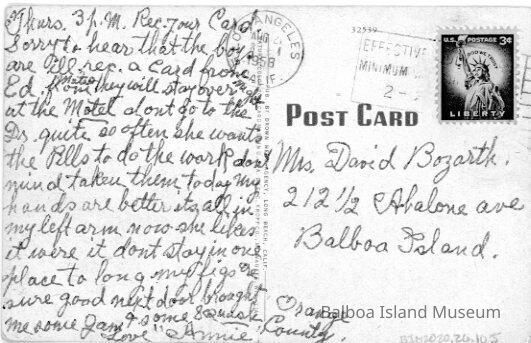 Thurs. 3 p.M. Rec. your Card
Sorry to hear that the boys
are Ill. rec. a Card from
Ed. from Mateo they will stay over night
at the Motel dont go to the
Drs. quite so often she wants
the Pills to do the work dont
mind taken them. today my
hands are better its all in
my left arm now she likes
it were it dont stay in one
place to long my figs are
sure good next door brought
me some Jam & some Squash
Love Annie
LOS ANGELES
AUG 21
1958
CALIF.
32539
EFFECTIVE
MINIMUM
2
U.S. POSTAGE 3¢
IN GOD WE TRUST
LIBERTY
POST CARD
Mrs. David Bozarth.
212½ Abalone ave
Balboa Island.
Orange
County.
Balboa Island Museum
BIM2020.26.105